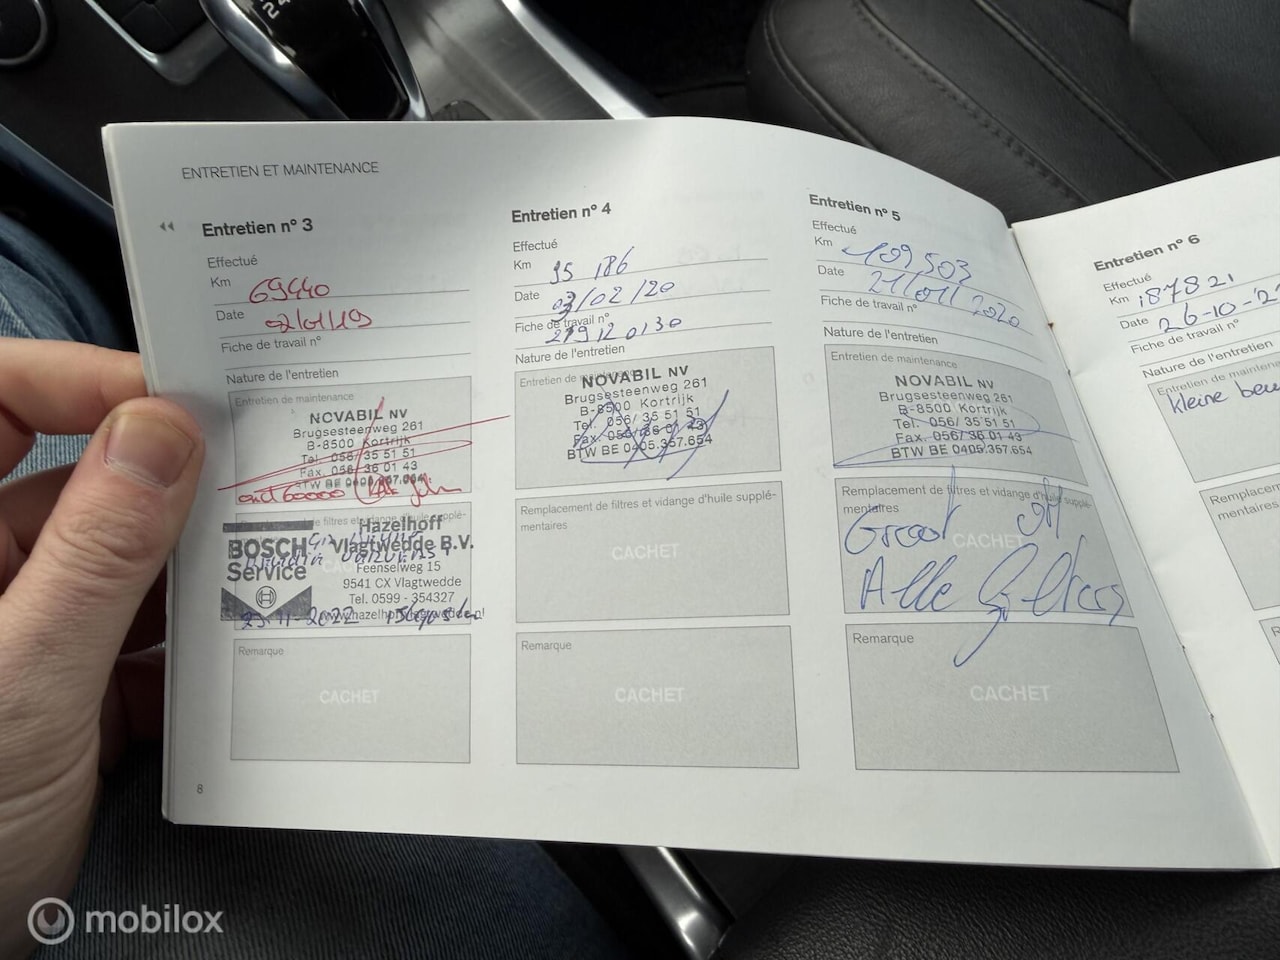 ENTRETIEN ET MAINTENANCE
Entretien nº 3
Effectué
Km 69440
Date 02/01/19
Fiche de travail nº
Nature de l'entretien
Entretien de maintenance
NOVABIL NV
Brugsesteenweg 261
B-8500 Kortrijk
Tel. 056/ 35 51 51
Fax. 056/ 36 01 43
BTW BE 0405.357.654
60000
de filtres et vidange d'huile supplé-
BOSCH
Service
Hazelhoff
Vlagtwedde B.V.
Feenselweg 15
9541 CX Vlagtwedde
Tel. 0599 - 354327
23-11-2022
Remarque
CACHET
8
Entretien nº 4
Effectué
Km 95 186
Date 03/02/20
Fiche de travail nº
219120130
Nature de l'entretien
Entretien de maintenance
NOVABIL NV
Brugsesteenweg 261
B-8500 Kortrijk
Tel. 056/ 35 51 51
Fax. 056/ 36 01 43
BTW BE 0405.357.654
Remplacement de filtres et vidange d'huile supplé-
mentaires
CACHET
Remarque
CACHET
Entretien nº 5
Effectué
Km 109,503
Date 21/01/2020
Fiche de travail nº
Nature de l'entretien
Entretien de maintenance
NOVABIL NV
Brugsesteenweg 261
B-8500 Kortrijk
Tel. 056/ 35 51 51
Fax. 056/ 36 01 43
BTW BE 0405.357.654
Remplacement de filtres et vidange d'huile supplé-
mentaires
CACHET
Groot
Alle
Remarque
CACHET
Entretien nº 6
Effectué
Km 187821
Date 26-10-'2
Fiche de travail nº
Nature de l'entretien
Entretien de maintenan
kleine beu
Remplacem
mentaires
R
mobilox